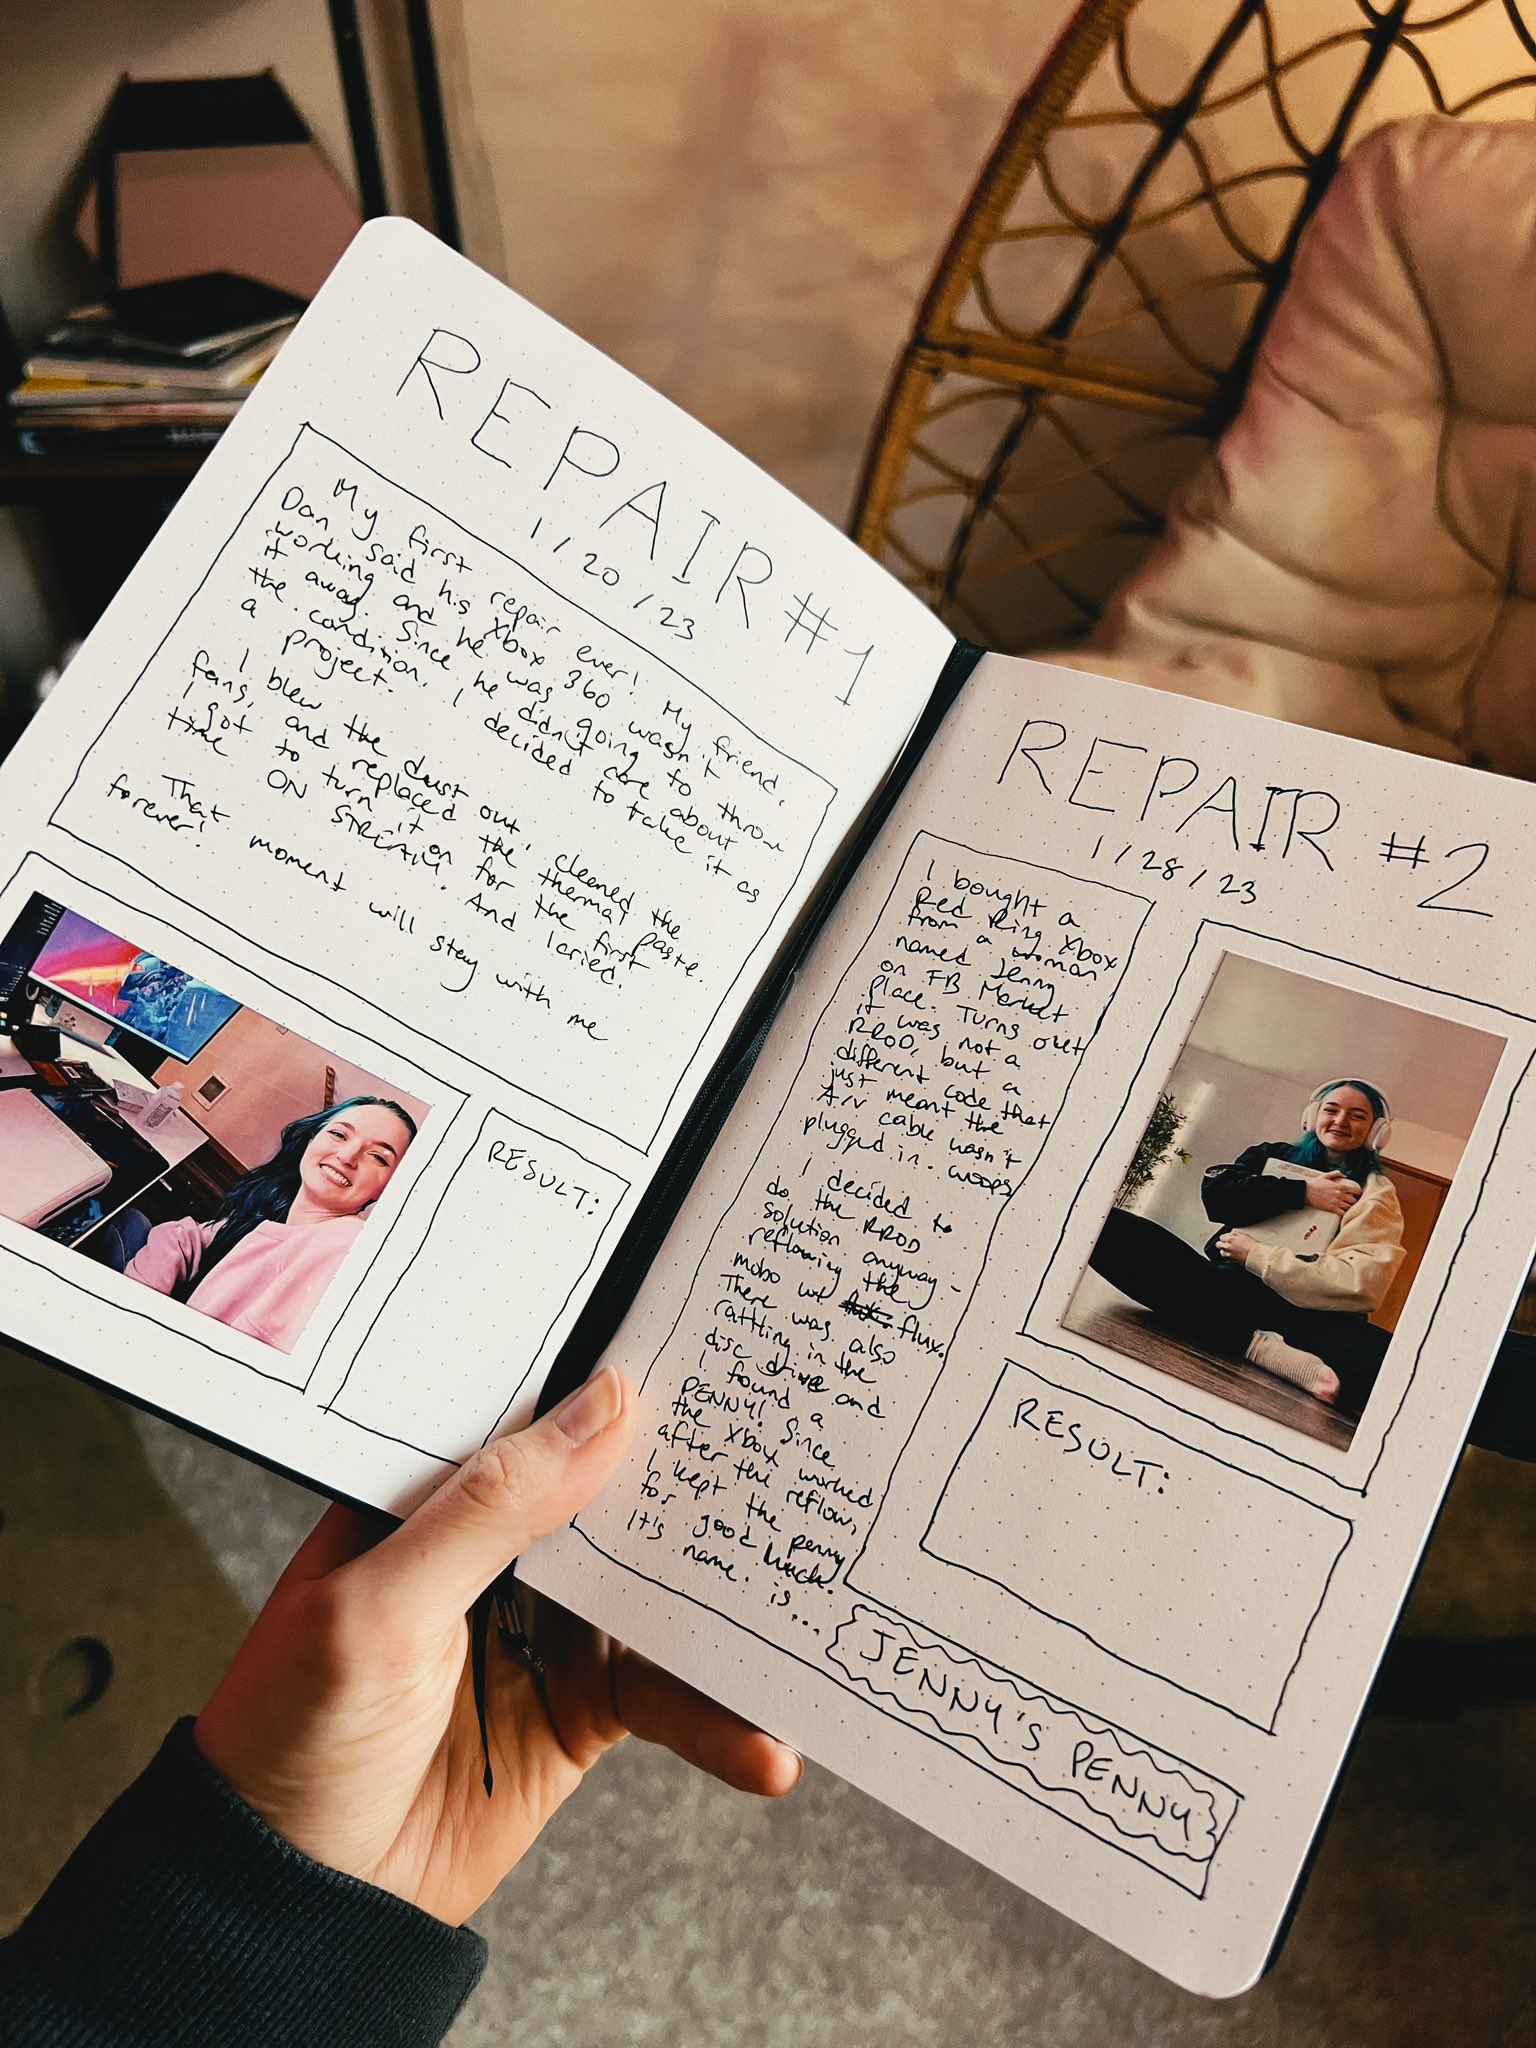 REPAIR #1
1/20/23
My first repair ever! My friend,
Dan said his Xbox 360 wasn't
working and he was going to throw
it away. Since he didn't care about
the condition, I decided to take it as
a project.
I blew the dust out, cleaned the
fans, and replaced the thermal paste.
I got to turn it on for the first
time ON STREAM. And I cried.
That moment will stay with me
forever!
RESULT:
REPAIR #2
1/28/23
I bought a
Red Ring Xbox
from a woman
named Jenny
on FB Market
place. Turns out
it was not a
RROD, but a
different code that
just meant the
A/V cable wasn't
plugged in. woops
I decided to
do the RROD
solution anyway -
reflowing the
mobo w/ flux.
There was also
rattling in the
disc drive and
I found a
PENNY! Since
the Xbox worked
after the reflow,
I kept the penny
for good luck.
It's name is...
JENNY'S PENNY
RESULT: